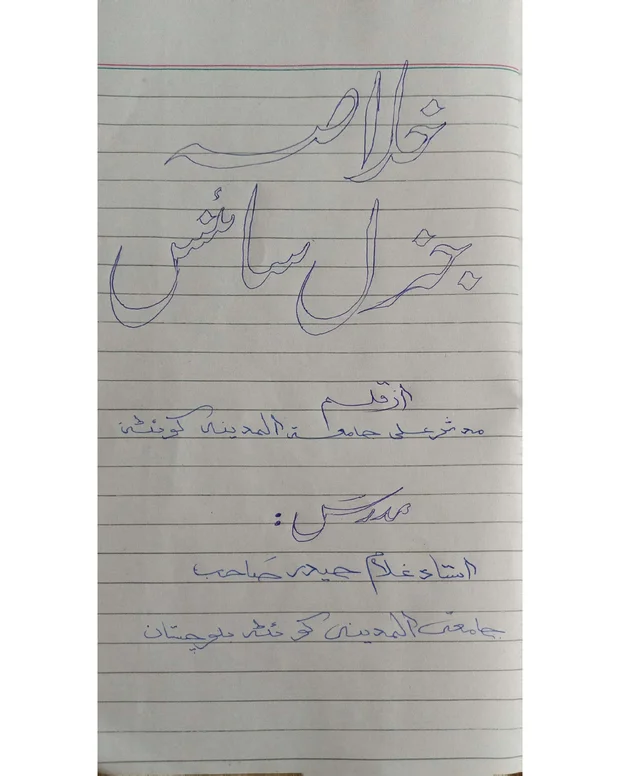 خلاصہ
جنرل سائنس
از قلم
مدثر علی جامعۃ المدینہ کوئٹہ
مدرس :
استاد غلام حیدر صاحب
جامعۃ المدینہ کوئٹہ بلوچستان